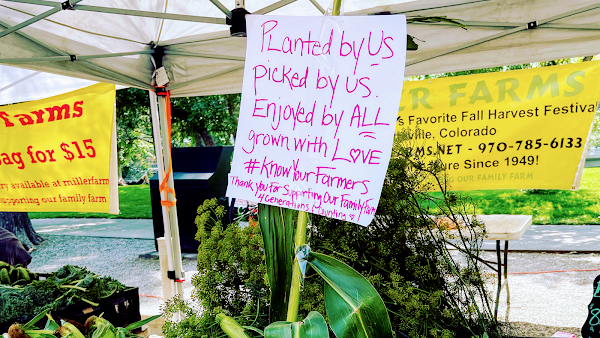 PLanted by Us
picked by us.
Enjoyed by ALL
grown with LOVE
#KnowYourFarmers
Thank you for Supporting Our Family Farm
4 Generations
Farms
ag for $15
ry available at millerfarm
supporting our family farm
ER FARMS
's Favorite Fall Harvest Festival
ville, Colorado
MS.NET - 970-785-6133
ure Since 1949!
NG OUR FAMILY FARM